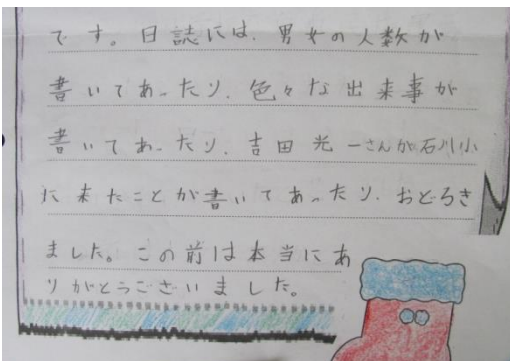 です。日誌には、男女の人数が
書いてあったり、色々な出来事が
書いてあったり、吉田光一さんが石川小
に来たことが書いてあったり、おどろき
ました。この前は本当にあ
りがとうございました。